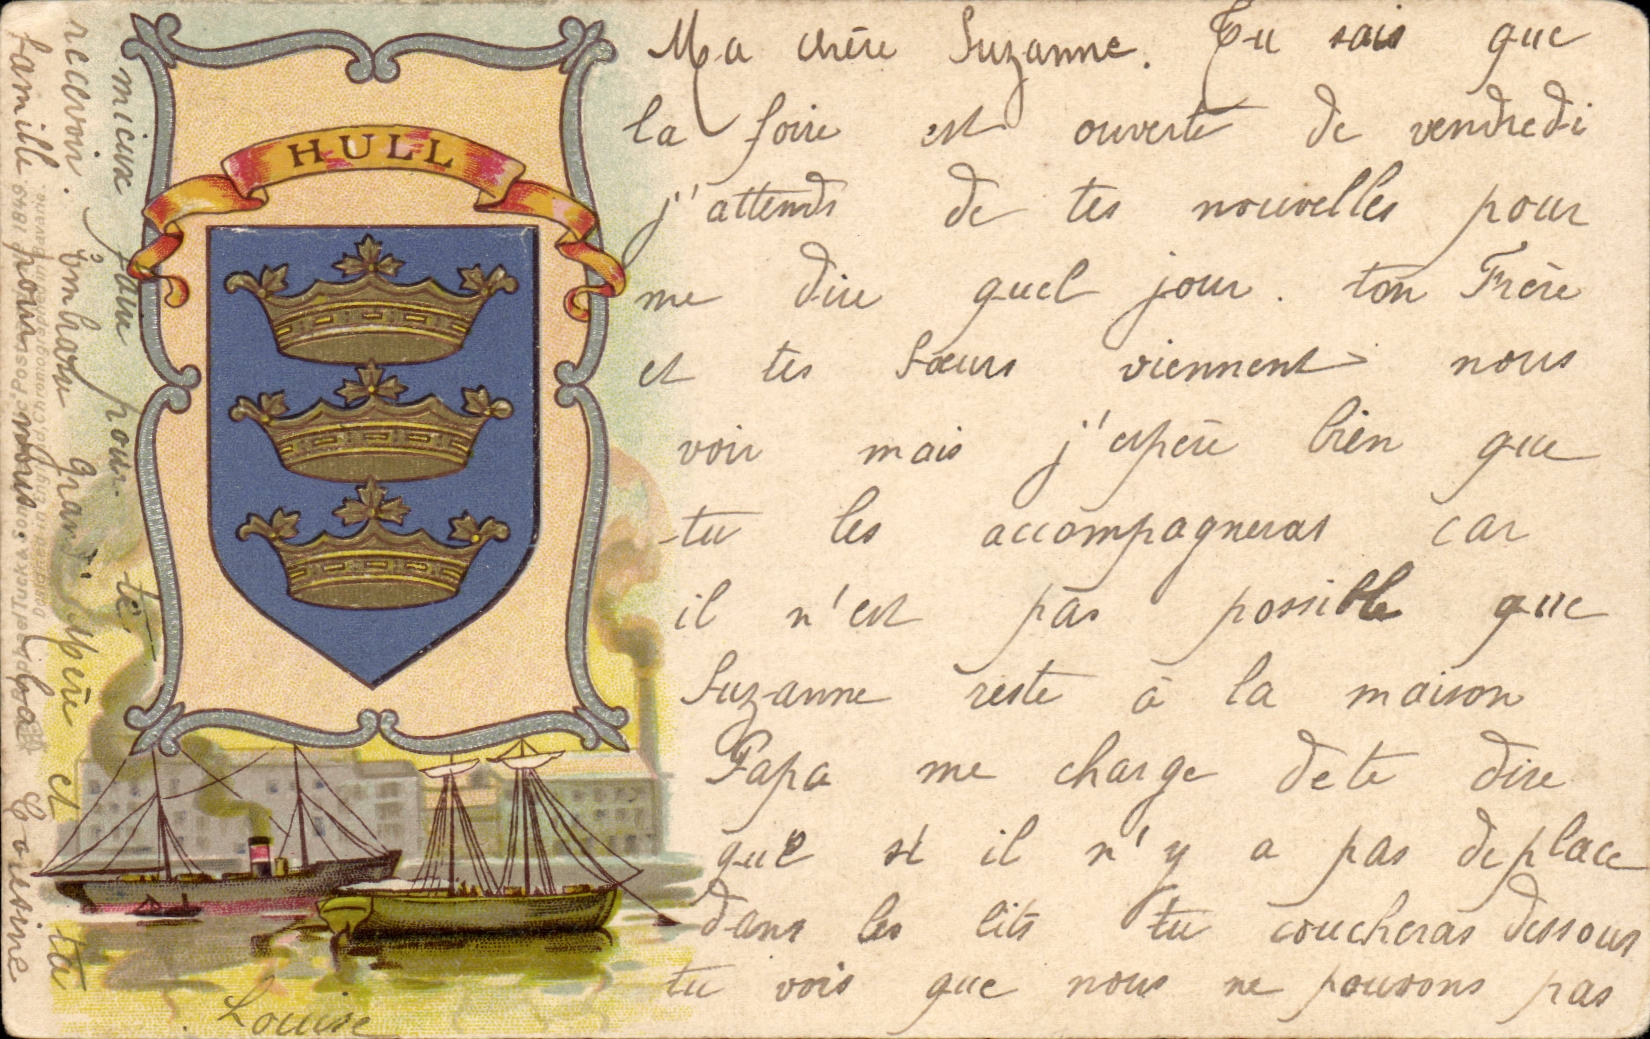 HULL
Ma chère Suzanne. Tu sais que
la foire est ouverte de vendredi
j'attends de tes nouvelles pour
me dire quel jour. ton Frère
et tes Sœurs viennent nous
voir mais j'espère bien que
tu les accompagneras car
il n'est pas possible que
Suzanne reste à la maison
Papa me charge de te dire
que si il n'y a pas de place
dans les lits tu coucheras dessous
tu vois que nous ne pouvons pas
mieux faire pour te
recevoir. Embrasse Grand'père et ta
famille pour nous. Ta Cousine
Louise